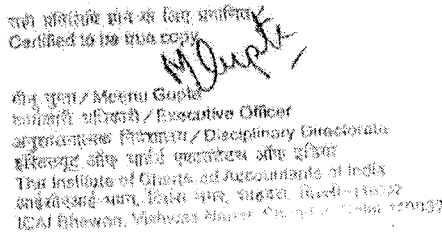 सही प्रतिलिपि होने के लिए प्रमाणित /
Certified to be true copy
MGupta
मीनू गुप्ता / Meenu Gupta
कार्यकारी अधिकारी / Executive Officer
अनुशासनात्मक निदेशालय / Disciplinary Directorate
इंस्टिट्यूट ऑफ चार्टर्ड एकाउंटेंट्स ऑफ इंडिया
The Institute of Chartered Accountants of India
आईसीएआई भवन, विश्वास नगर, शाहदरा, दिल्ली-110032
ICAI Bhawan, Vishwas Nagar, Delhi-110032